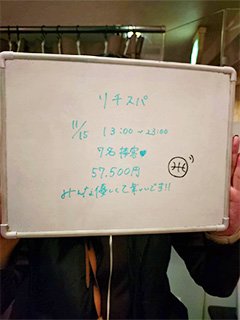 リチスパ
11/15 13:00~23:00
7名接客♥
57,500円
みんな優しくて幸いです!!